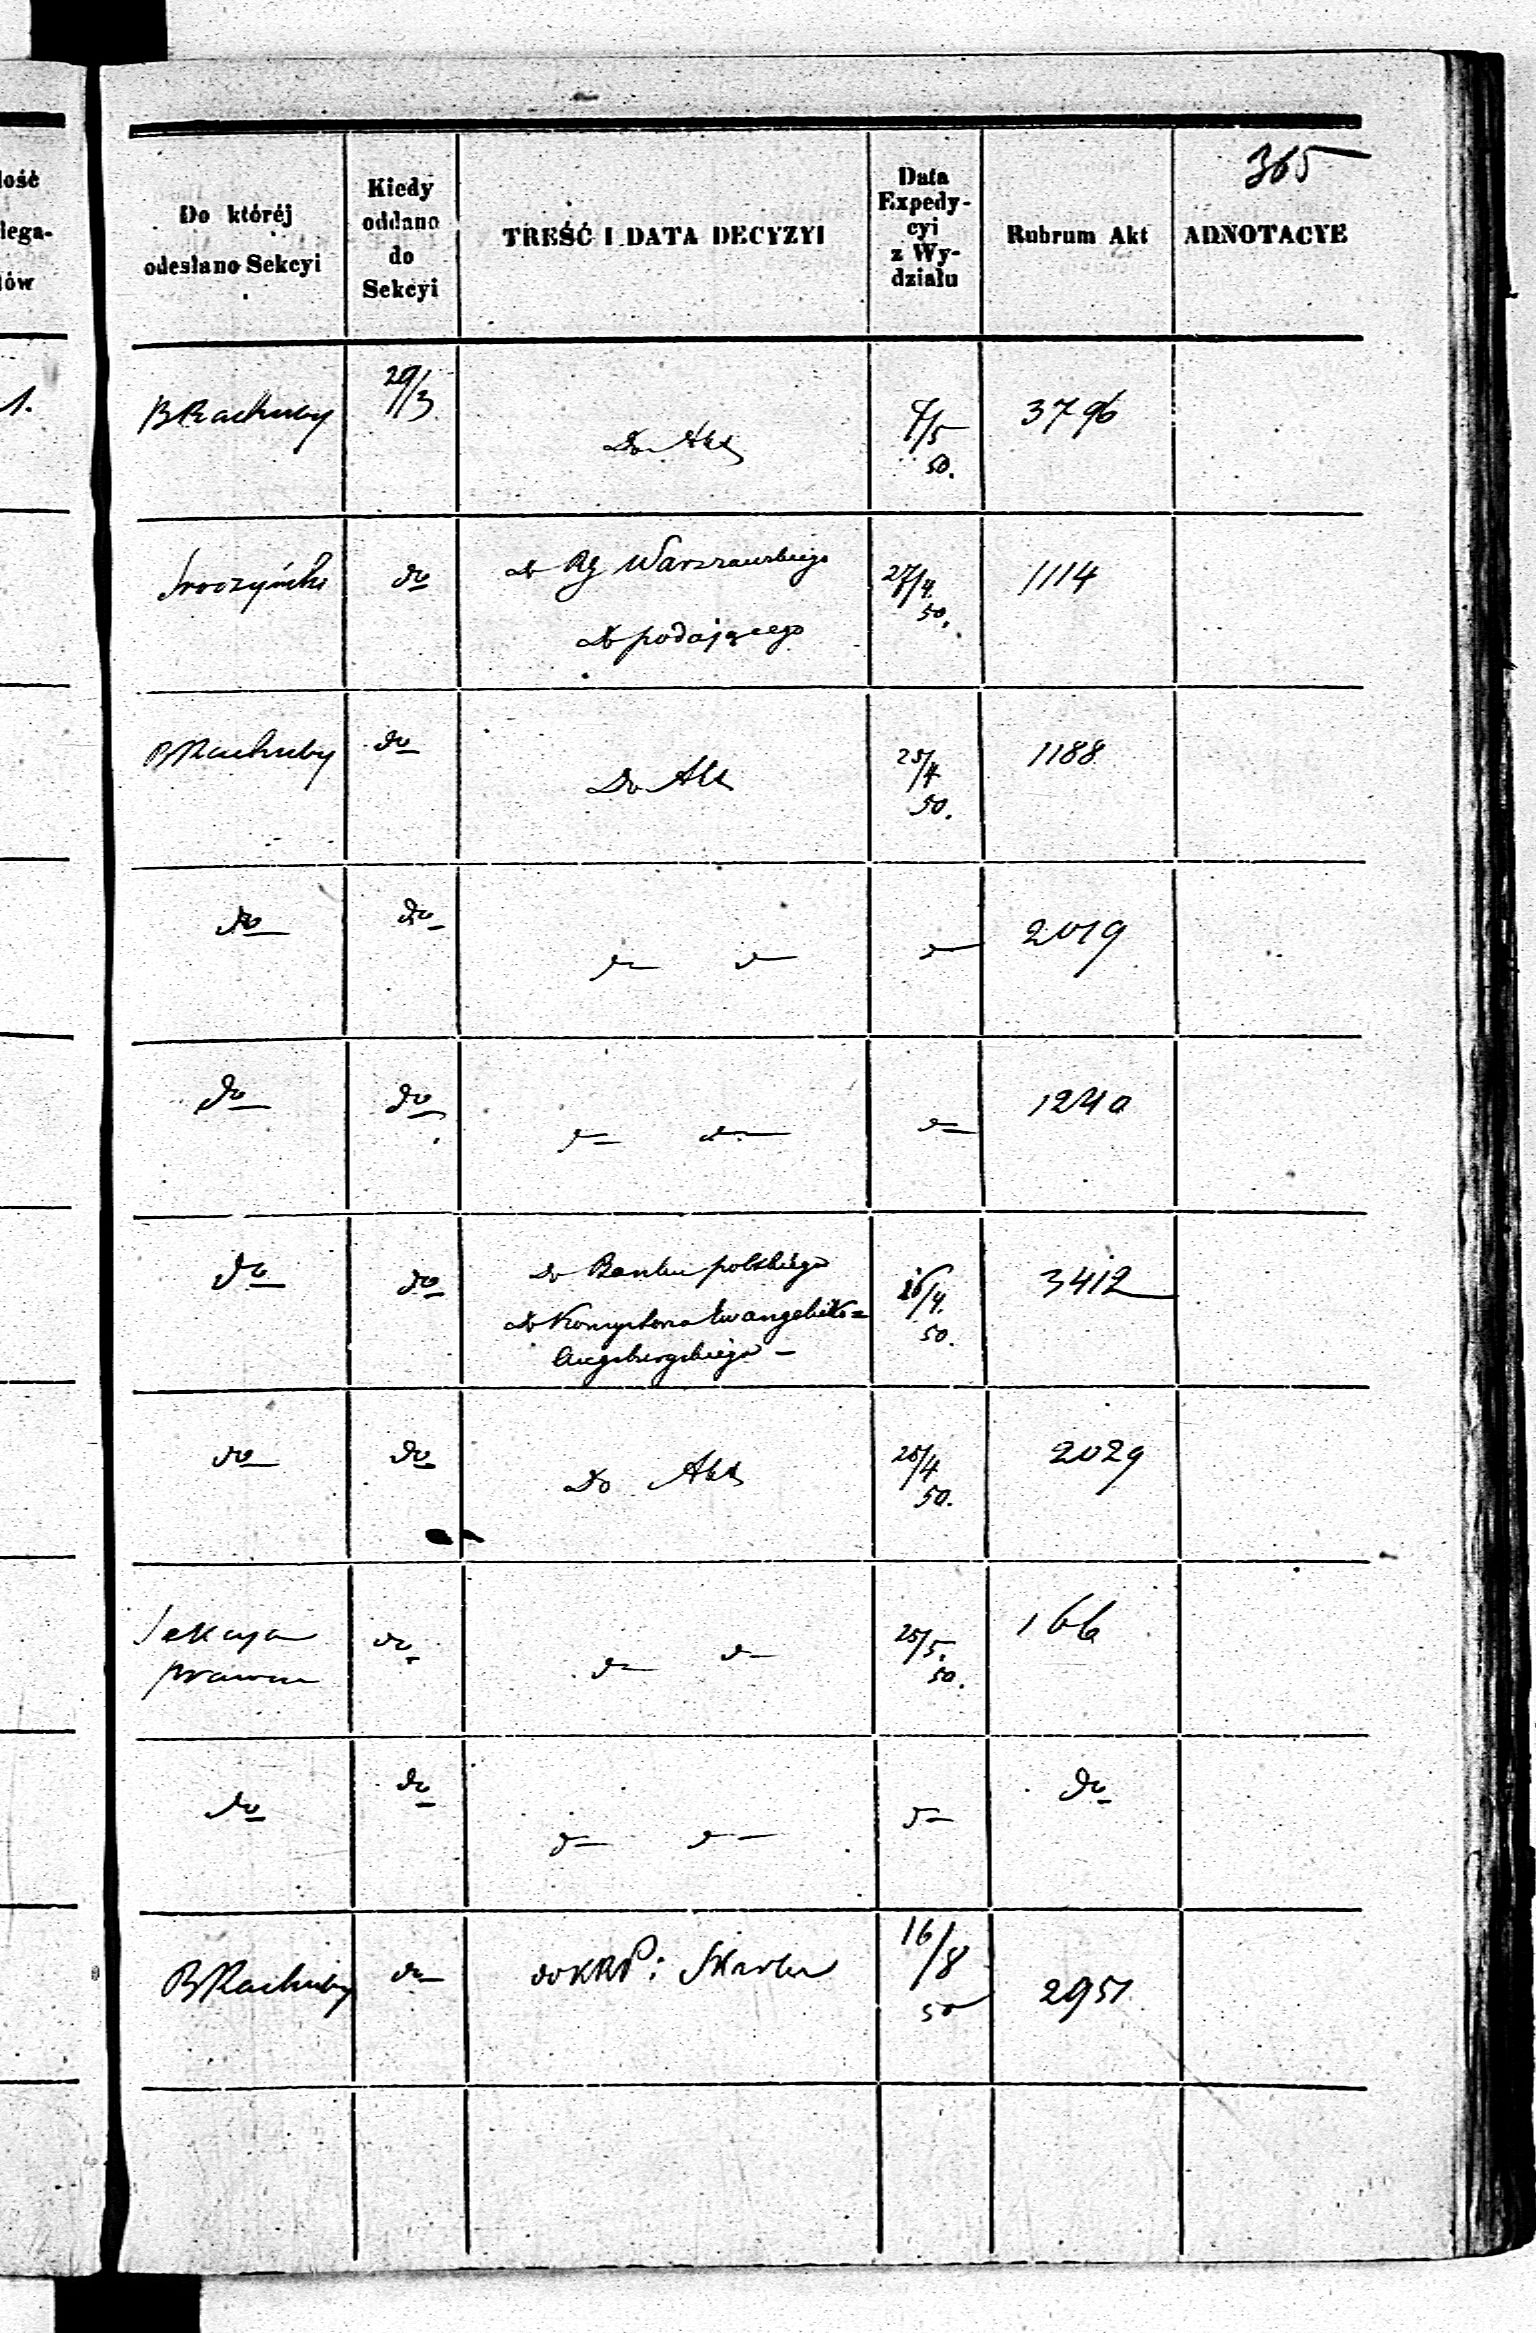 365
lość
lega-
łów
Do któréj
odesłano Sekcyi
Kiedy
oddano
do
Sekcyi
TREŚĆ I DATA DECYZYI
Data
Expedy-
cyi
z Wy-
działu
Rubrum Akt
ADNOTACYE
1.
B Rachuby
29/3
Do Akt
7/5
50.
3796
do
do Rg Warszawskiego
do podającego
27/4.
50.
1114
B Rachuby
do
Do Akt
25/4
50.
1188
do
do
d d
d
2019
do
do
d d
d
1240
do
do
do Banku polskiego
do Konsystorza Ewangelicko=
Augsburgskiego –
26/4.
50.
3412
do
do
Do Akt
25/4
50.
2029
Sekcya
prawna
do
d d
25/5.
50.
166
do
do
d d
d
do
B Rachuby
do
do KRP: Skarbu
16/8
50
2951